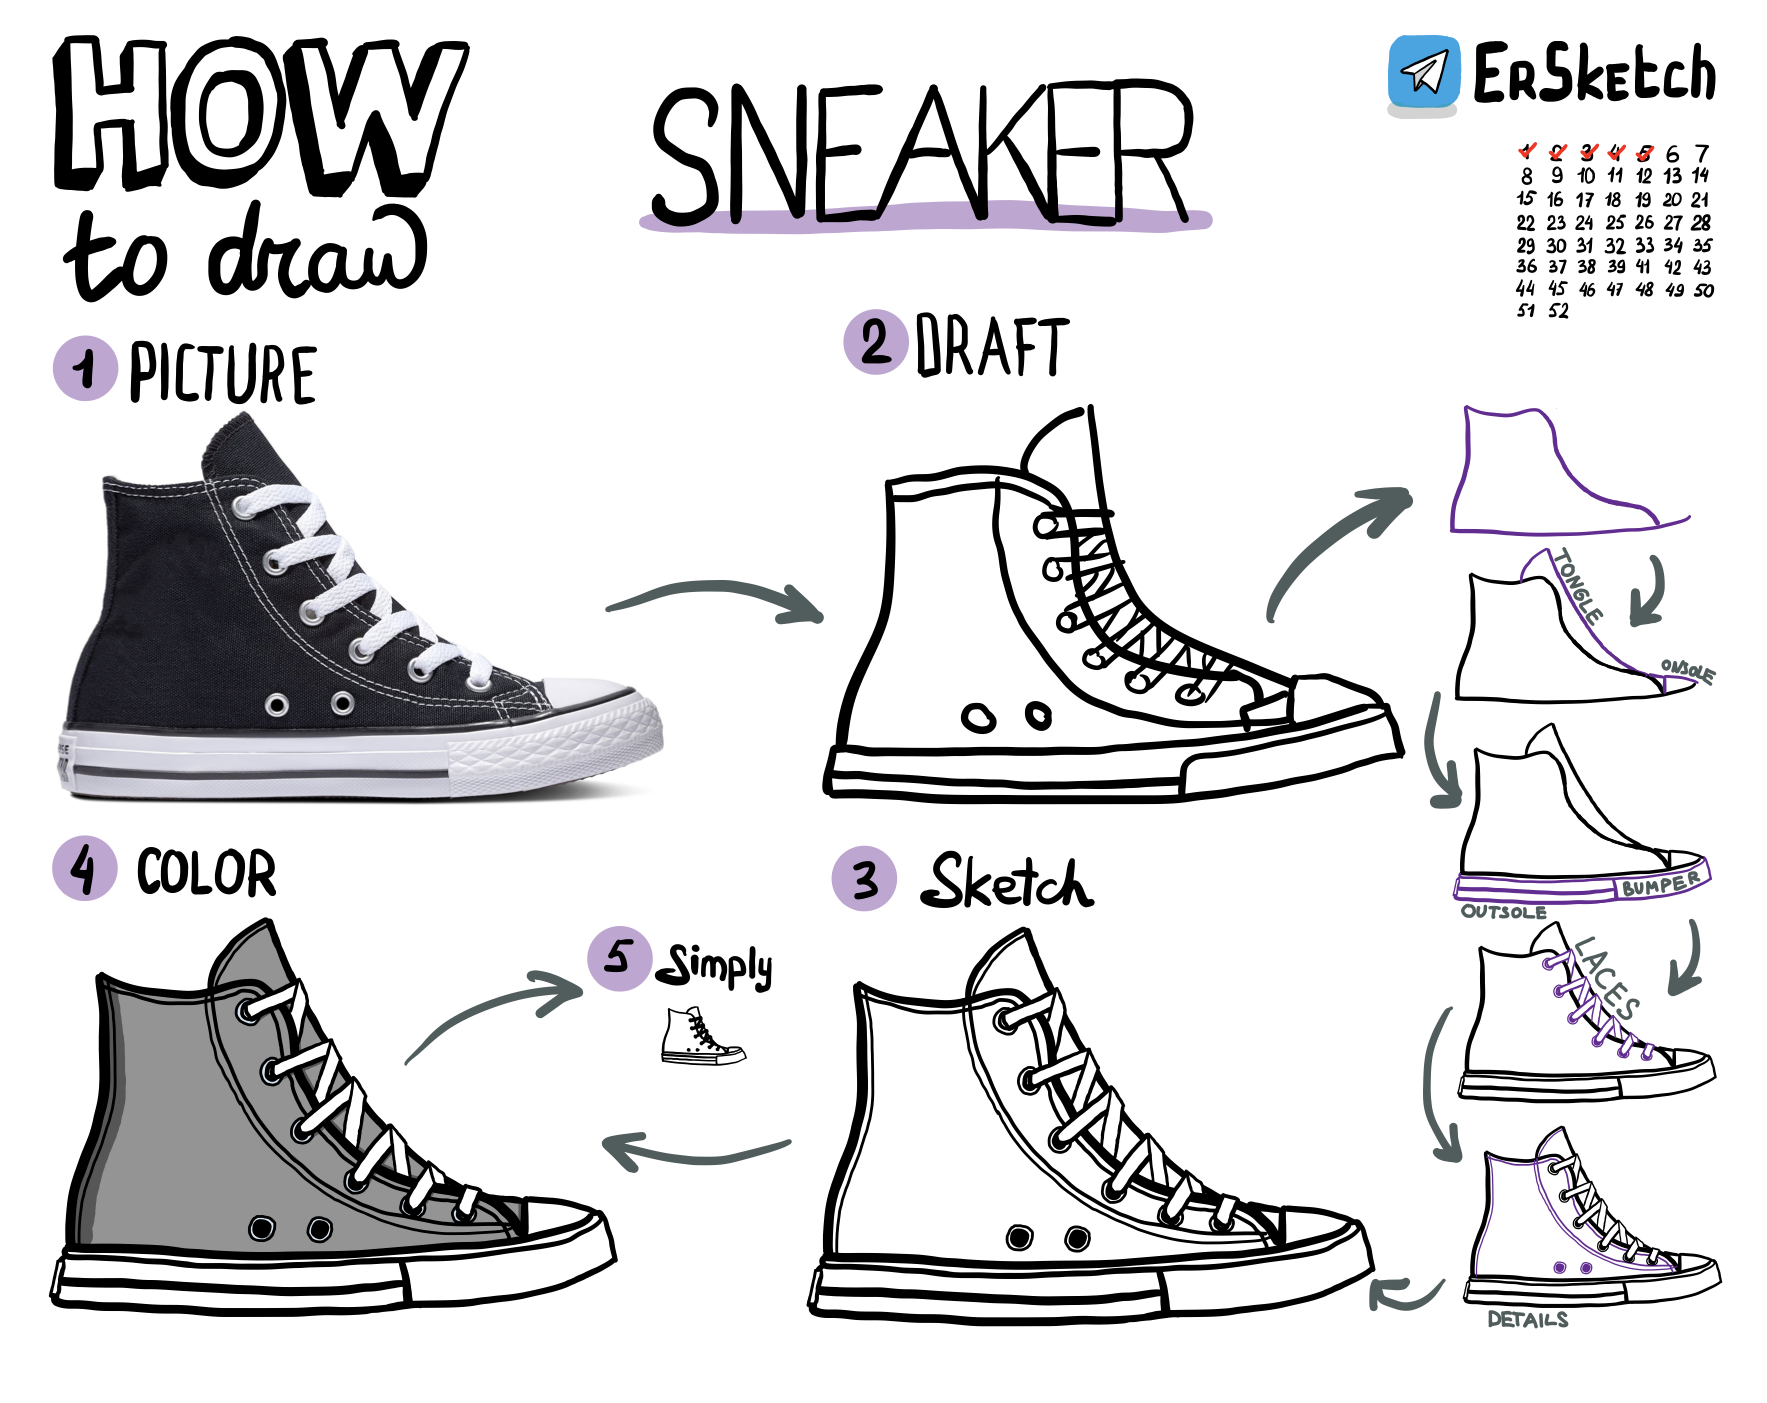 HOW
to draw
SNEAKER
ErSketch
1 2 3 4 5 6 7
8 9 10 11 12 13 14
15 16 17 18 19 20 21
22 23 24 25 26 27 28
29 30 31 32 33 34 35
36 37 38 39 41 42 43
44 45 46 47 48 49 50
51 52
1 PICTURE
2 DRAFT
TONGLE
ONSOLE
BUMPER
OUTSOLE
LACES
DETAILS
3 Sketch
4 COLOR
5 Simply